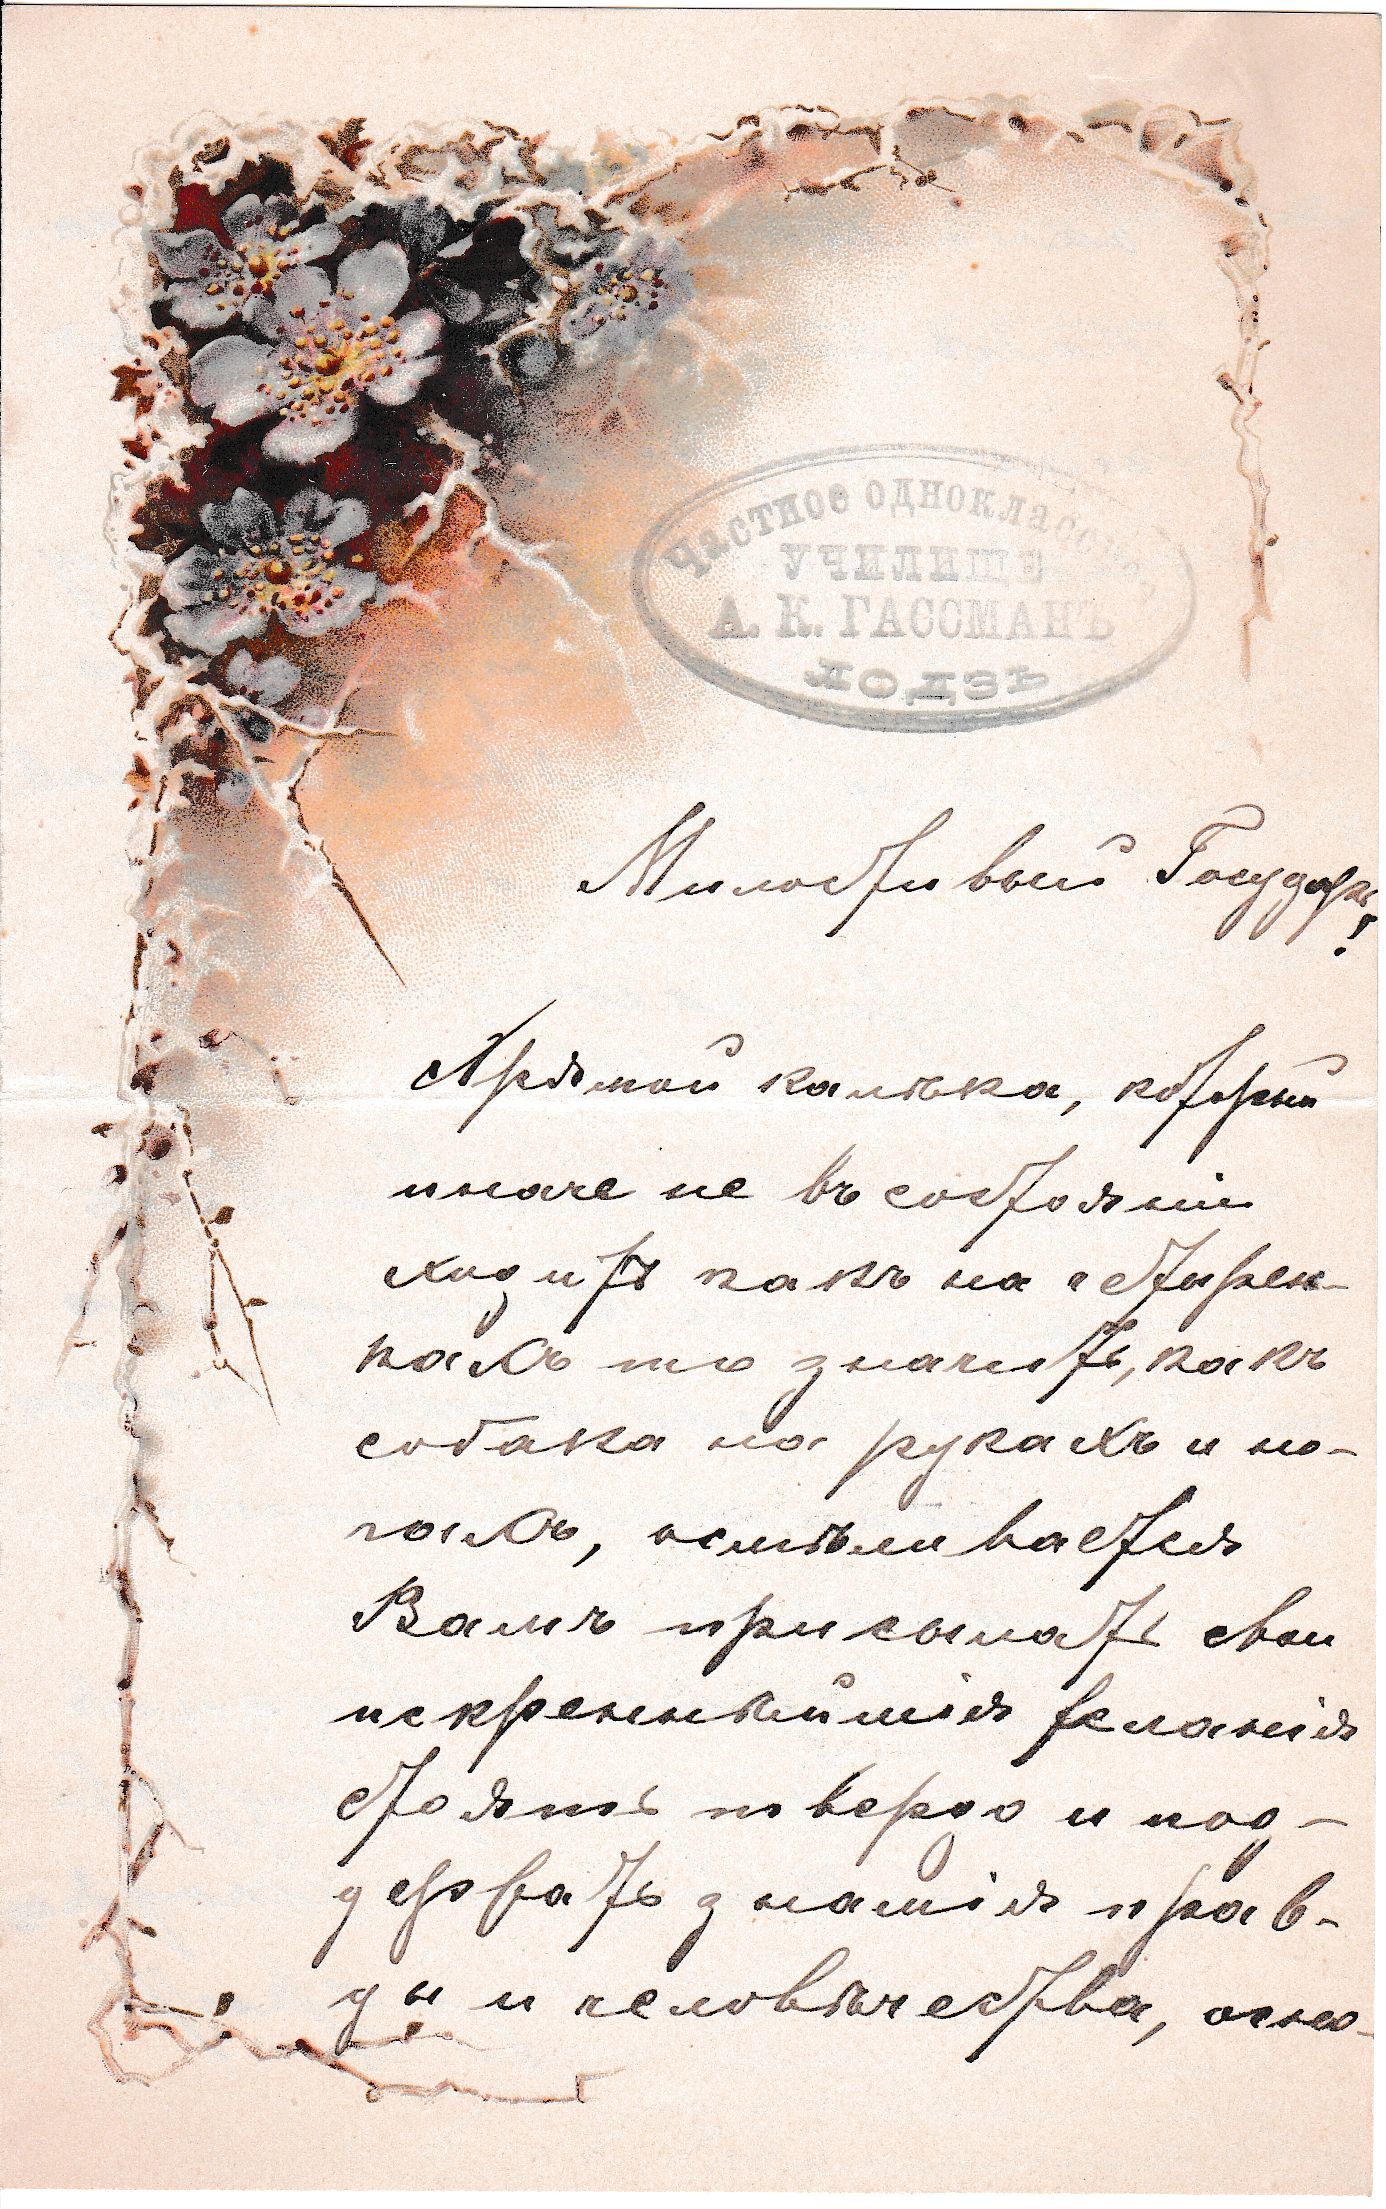 Частное одноклассное
УЧИЛИЩЕ
А. К. ГАССМАНЪ
ЛОДЗЬ
Милостивый Государь!
Прямой калѣка, который
иначе не въ состояніи
ходить какъ на четырен-
кахъ то значить, какъ
собака на рукахъ и но-
гахъ, осмѣливается
Вамъ присылать свои
искреннѣйшія желанія
стоять твердо и под-
держать знамія прав-
ды и человѣчества, осно-